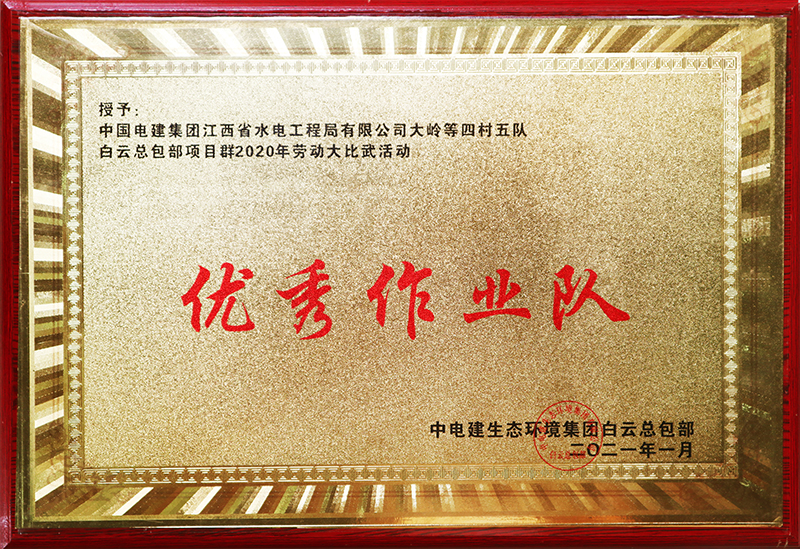 授予：
中国电建集团江西省水电工程局有限公司大岭等四村五队
白云总包部项目群2020年劳动大比武活动
优秀作业队
中电建生态环境集团白云总包部
二〇二一年一月